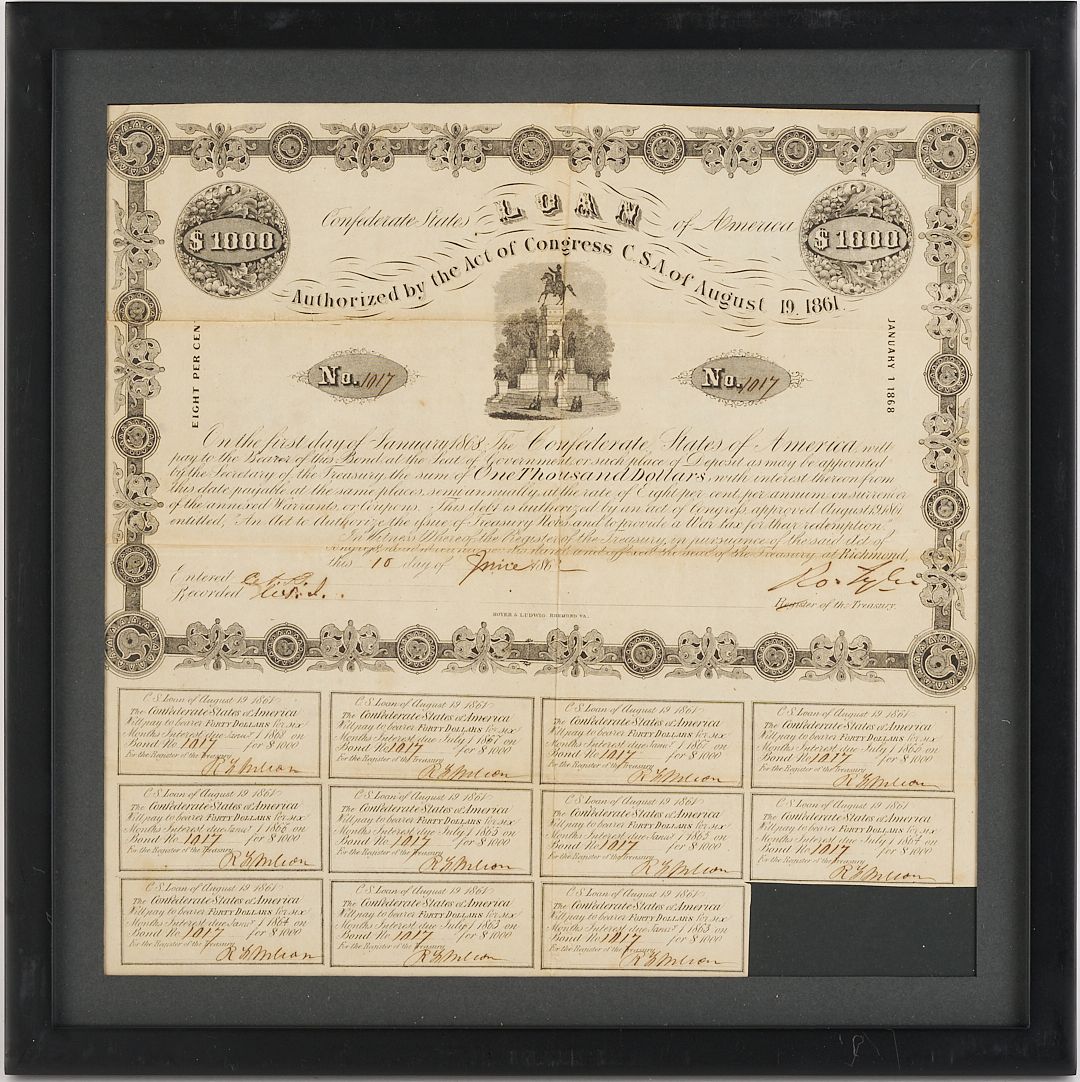 Confederate States LOAN of America
Authorized by the Act of Congress C.S.A of August 19, 1861.
$1000
$1000
EIGHT PER CEN
JANUARY 1 1868
No. 1017
No. 1017
On the first day of January 1868, The Confederate States of America, will
pay to the Bearer of this Bond, at the Seat of Government, or such place of Deposit as may be appointed
by the Secretary of the Treasury, the sum of One Thousand Dollars, with interest thereon from
this date, payable at the same places, semi annually, at the rate of Eight per cent. per annum, on surrender
of the annexed Warrants, or Coupons. This debt is authorized by an act of Congress, approved August 19, 1861,
entitled, "An Act to Authorize the issue of Treasury Notes and to provide a War tax for their redemption."
In Witness Whereof the Register of the Treasury, in pursuance of the said Act of
Congress, hath hereunto set his hand, and affixed the seal of the Treasury, at Richmond,
this 10 day of June 1862
Entered
Recorded
Ro. Tyler
Register of the Treasury.
HOYER & LUDWIG, RICHMOND VA.
C.S. Loan of August 19 1861
The Confederate States of America
Will pay to bearer FORTY DOLLARS for six
Months Interest due Jany 1 1868 on
Bond No 1017 for $1000
For the Register of the Treasury
C.S. Loan of August 19 1861
The Confederate States of America
Will pay to bearer FORTY DOLLARS for six
Months Interest due July 1 1867 on
Bond No 1017 for $1000
For the Register of the Treasury
C.S. Loan of August 19 1861
The Confederate States of America
Will pay to bearer FORTY DOLLARS for six
Months Interest due Jany 1 1867 on
Bond No 1017 for $1000
For the Register of the Treasury
C.S. Loan of August 19 1861
The Confederate States of America
Will pay to bearer FORTY DOLLARS for six
Months Interest due July 1 1866 on
Bond No 1017 for $1000
For the Register of the Treasury
C.S. Loan of August 19 1861
The Confederate States of America
Will pay to bearer FORTY DOLLARS for six
Months Interest due Jany 1 1866 on
Bond No 1017 for $1000
For the Register of the Treasury
C.S. Loan of August 19 1861
The Confederate States of America
Will pay to bearer FORTY DOLLARS for six
Months Interest due July 1 1865 on
Bond No 1017 for $1000
For the Register of the Treasury
C.S. Loan of August 19 1861
The Confederate States of America
Will pay to bearer FORTY DOLLARS for six
Months Interest due Jany 1 1865 on
Bond No 1017 for $1000
For the Register of the Treasury
C.S. Loan of August 19 1861
The Confederate States of America
Will pay to bearer FORTY DOLLARS for six
Months Interest due July 1 1864 on
Bond No 1017 for $1000
For the Register of the Treasury
C.S. Loan of August 19 1861
The Confederate States of America
Will pay to bearer FORTY DOLLARS for six
Months Interest due Jany 1 1864 on
Bond No 1017 for $1000
For the Register of the Treasury
C.S. Loan of August 19 1861
The Confederate States of America
Will pay to bearer FORTY DOLLARS for six
Months Interest due July 1 1863 on
Bond No 1017 for $1000
For the Register of the Treasury
C.S. Loan of August 19 1861
The Confederate States of America
Will pay to bearer FORTY DOLLARS for six
Months Interest due Jany 1 1863 on
Bond No 1017 for $1000
For the Register of the Treasury